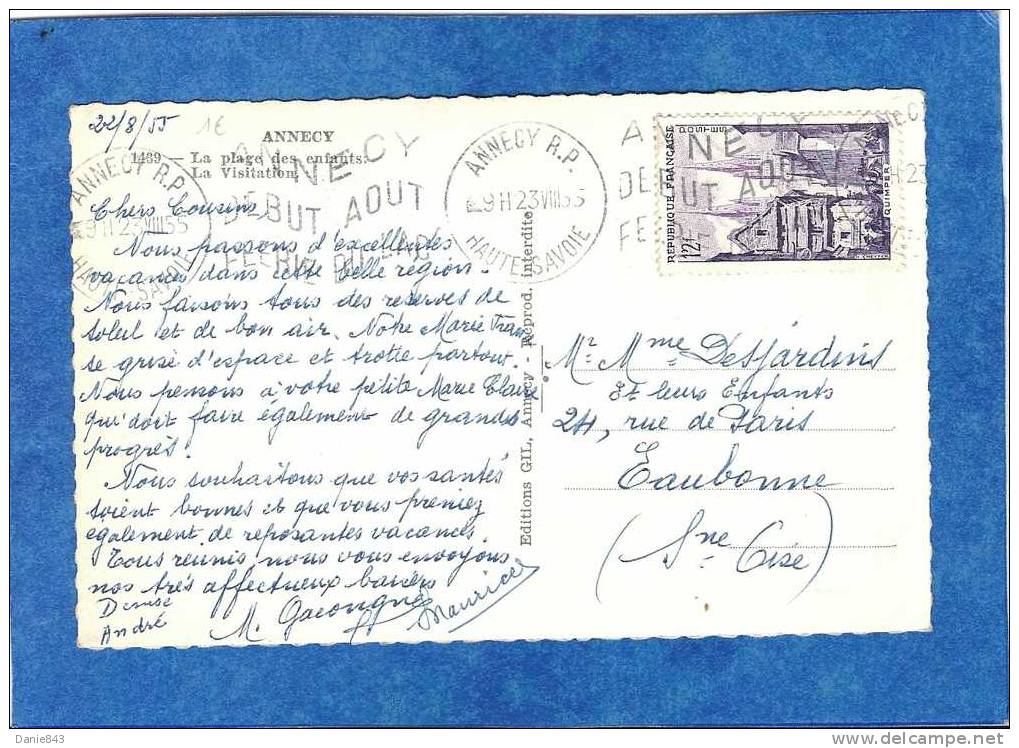 22/8/55
1€
ANNECY
1469 — La plage des enfants.
La Visitation
ANNECY R.P.
9H 23 VIII 55
HAUTE-SAVOIE
ANNECY
DEBUT AOUT
FEERIE DU LAC
ANNECY R.P.
9H 23 VIII 55
HAUTE-SAVOIE
ANNECY
DEBUT AOUT
RÉPUBLIQUE FRANÇAISE
POSTES
12F
QUIMPER
Chers Cousins
Nous passons d'excellentes
vacances dans cette belle région.
Nous faisons tous des réserves de
soleil et de bon air. Notre Marie Fran
se grise d'espace et trotte partout.
Nous pensons à votre petite Marie Claire
qui doit faire également de grands
progrès.
Nous souhaitons que vos santés
soient bonnes et que vous preniez
également de reposantes vacances.
Tous réunis, nous vous envoyons
nos très affectueux baisers
Denise
André
M. Gacongne
Maurice
Editions GIL, Annecy - Reprod. interdite
Mr. Mme Desjardins
Et leurs Enfants
24, rue de Paris
Eaubonne
(Sne Oise)
Danie843
www.delcampe.net